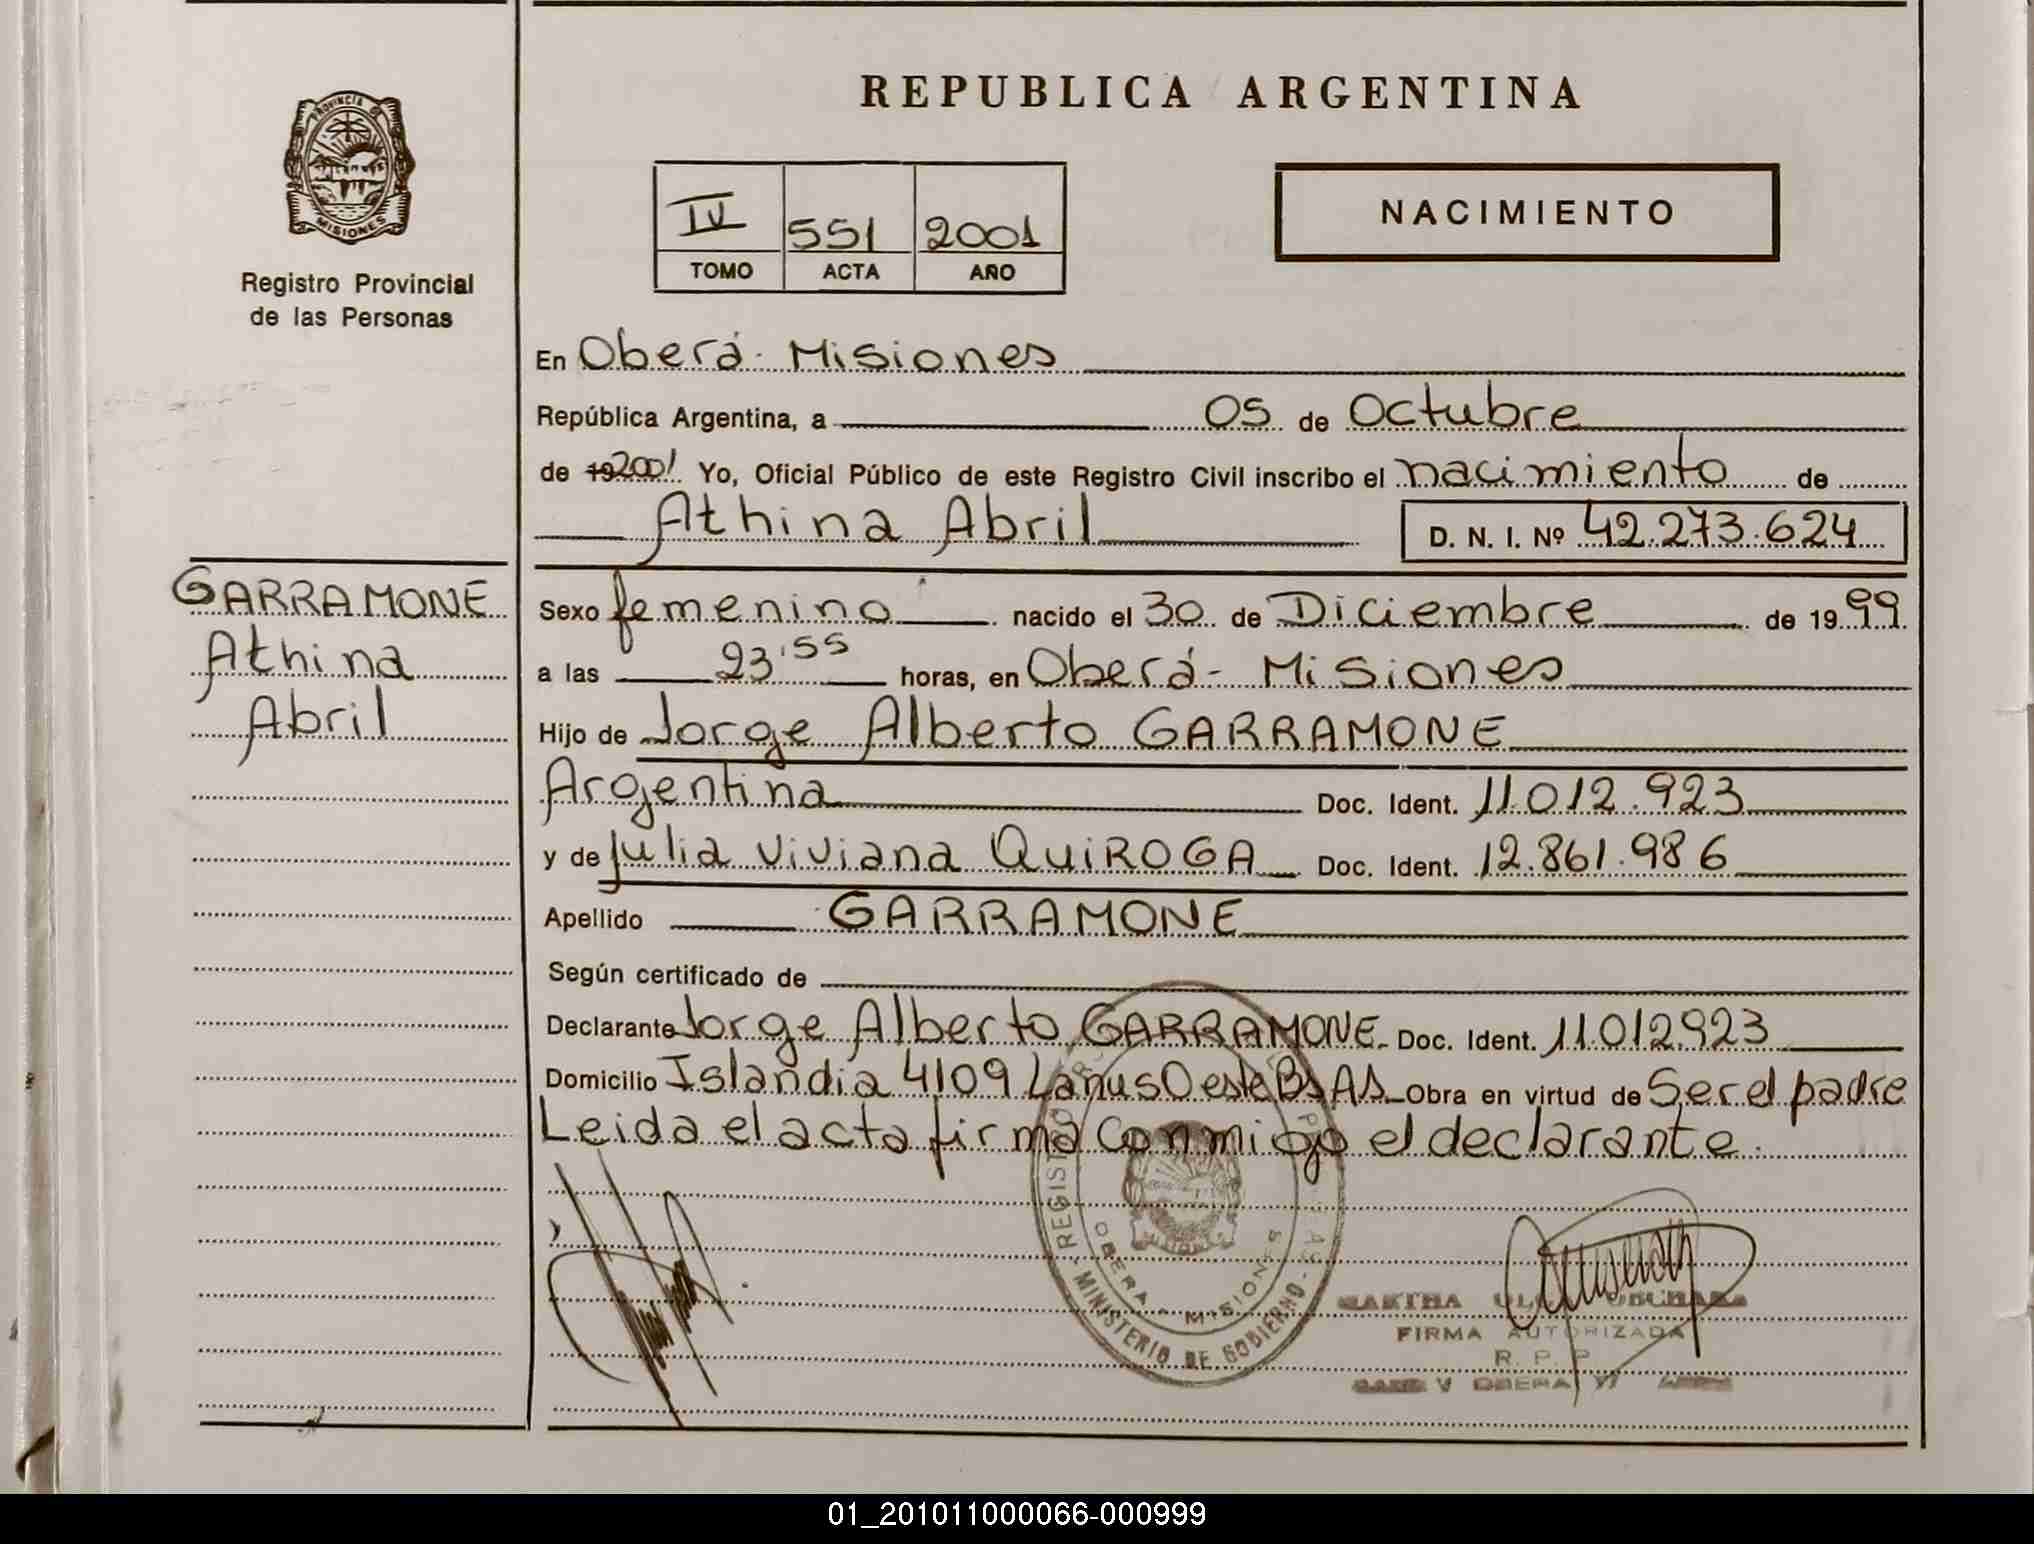 PROVINCIA DE
MISIONES
Registro Provincial
de las Personas
GARRAMONE
Athina
Abril
REPUBLICA ARGENTINA
IV 551 2001
TOMO ACTA AÑO
NACIMIENTO
En Oberá - Misiones
República Argentina, a 05 de Octubre
de 19 2001 Yo, Oficial Público de este Registro Civil inscribo el nacimiento de
Athina Abril D. N. I. Nº 42.273.624
Sexo femenino nacido el 30 de Diciembre de 1999
a las 23:55 horas, en Oberá - Misiones
Hijo de Jorge Alberto GARRAMONE
Argentina Doc. Ident. 11.012.923
y de Julia Viviana QUIROGA Doc. Ident. 12.861.986
Apellido GARRAMONE
Según certificado de
Declarante Jorge Alberto GARRAMONE Doc. Ident. 11.012.923
Domicilio Islandia 4109 Lanus Oeste Bs As Obra en virtud de Ser el padre
Leida el acta firma Conmigo el declarante.
REGISTRO
OBERA - MISIONES
MINISTERIO DE GOBIERNO
MARTHA
FIRMA AUTORIZADA
R. P. P.
OBERA
01_201011000066-000999